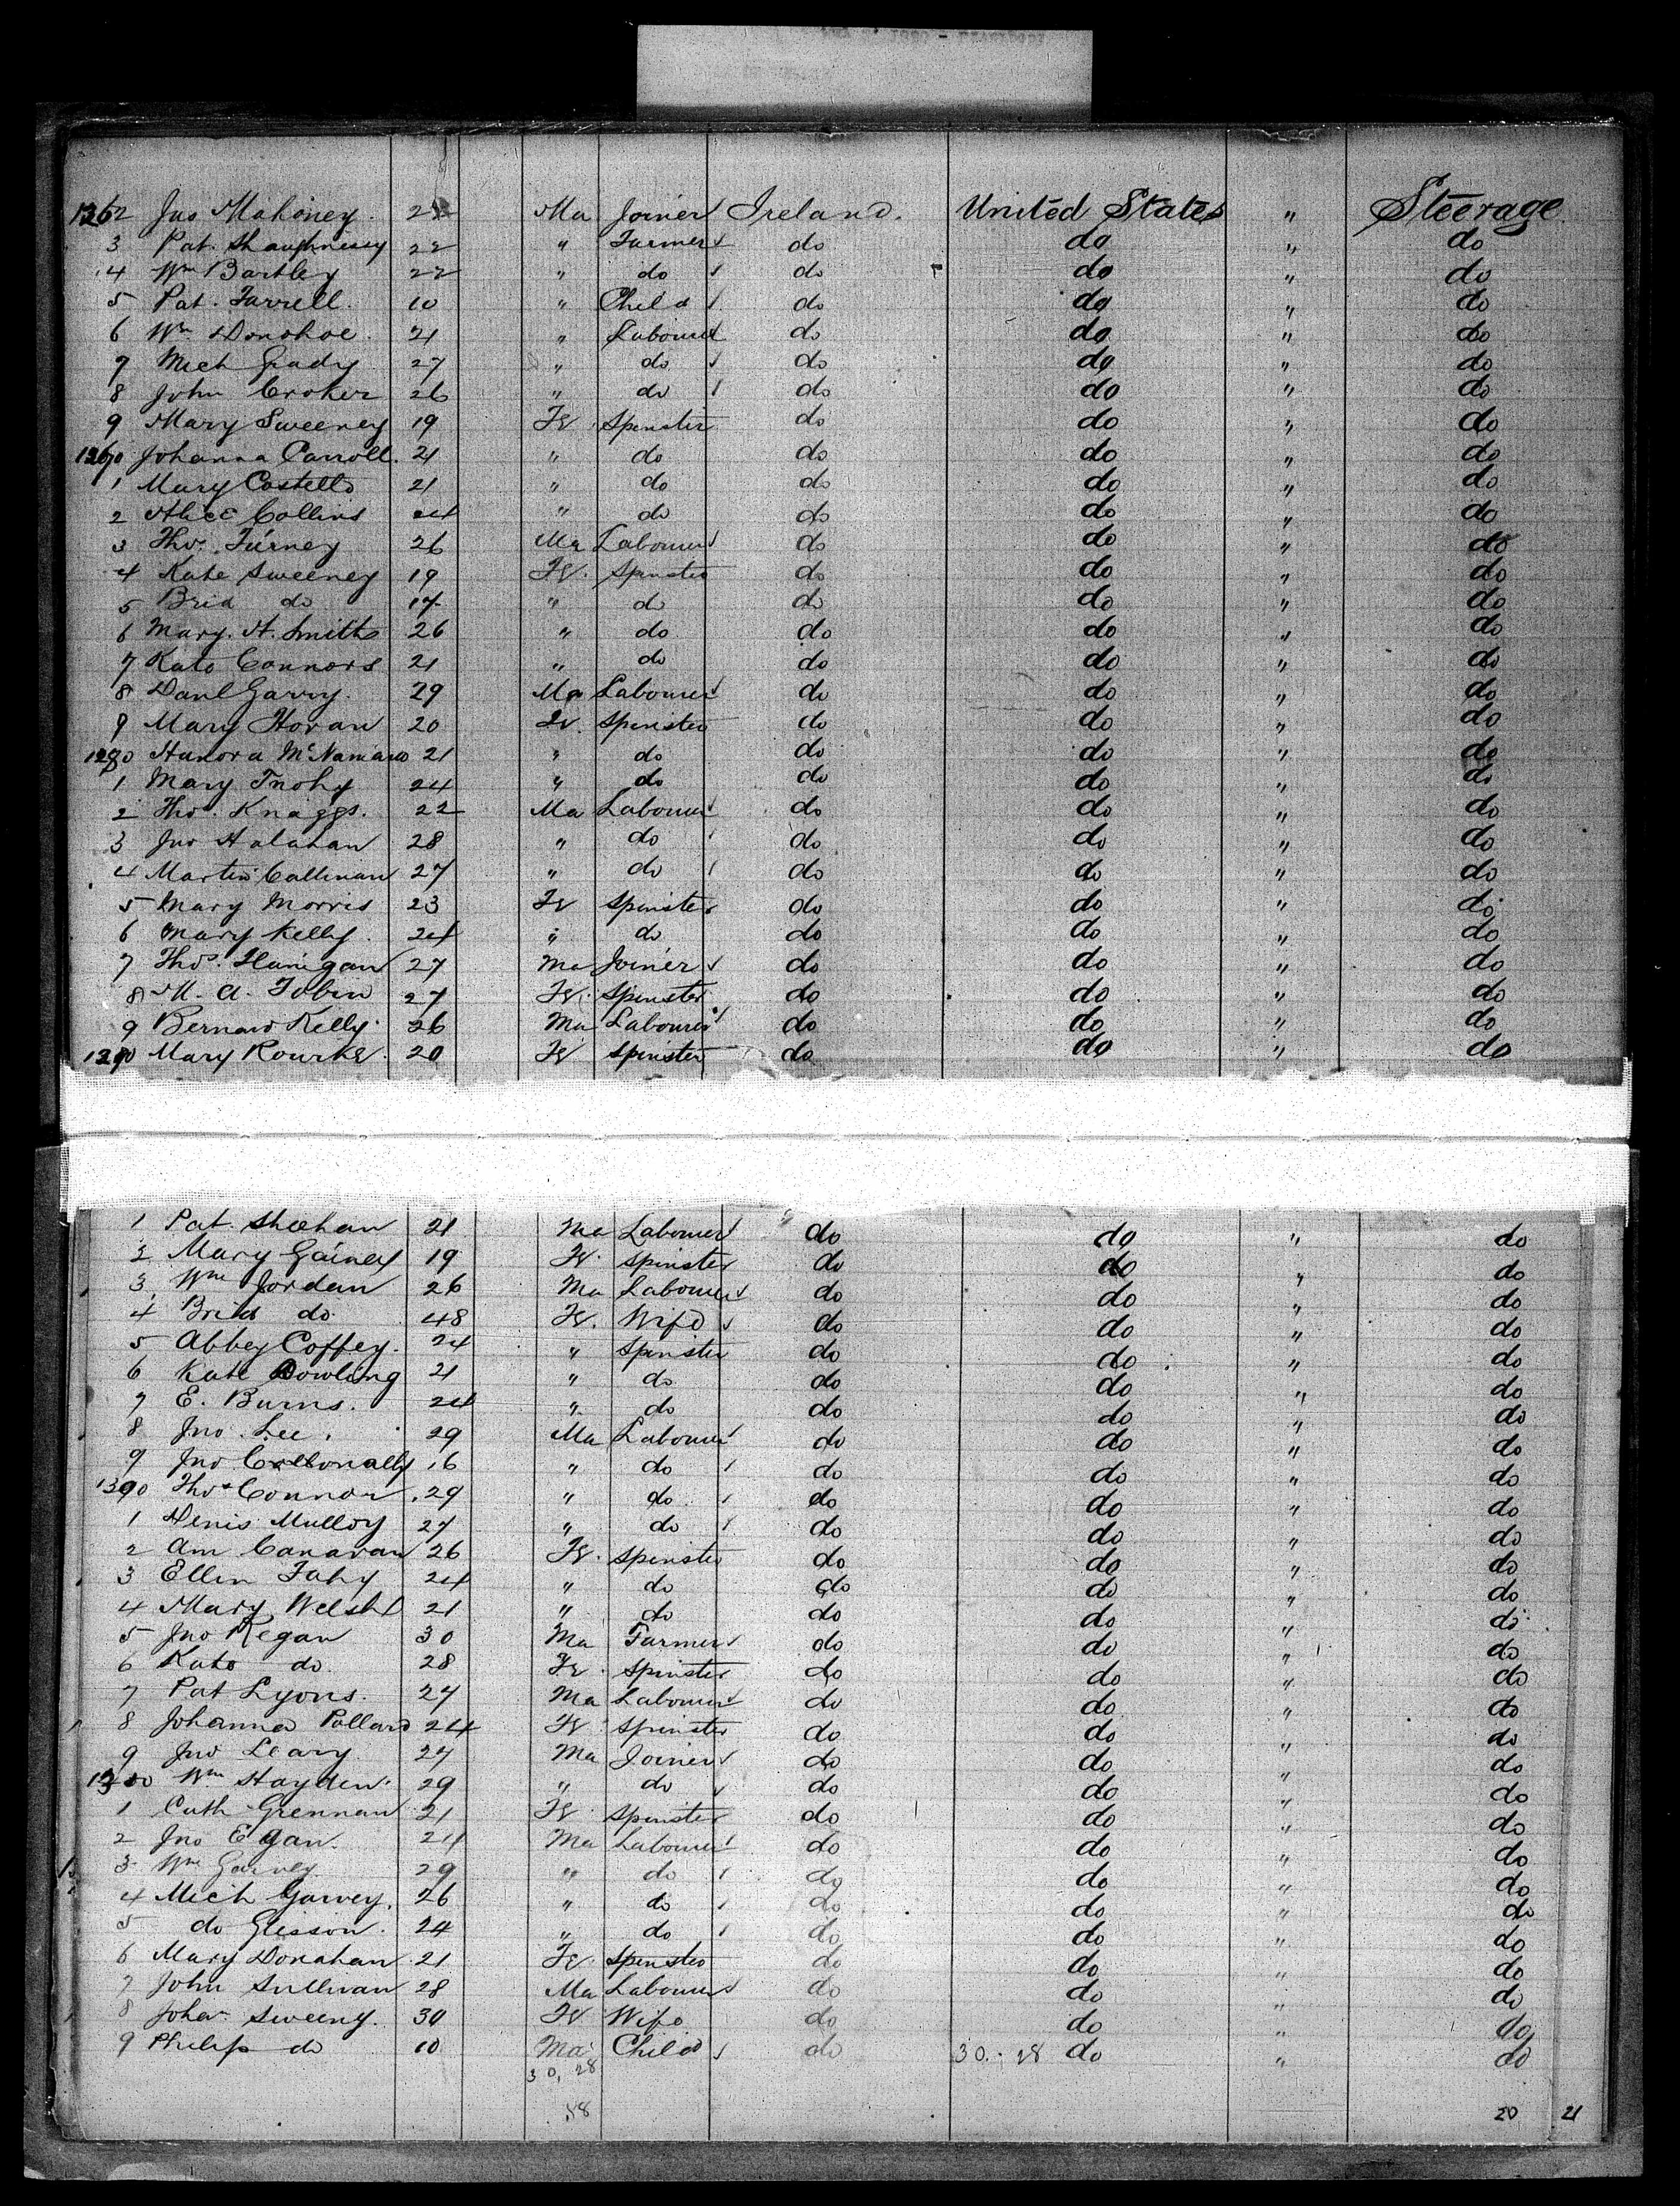 1262 Jno Mahoney. Ma Joiner Ireland. United States " Steerage
3 Pat. Shaughnessy 22 " Farmer do do " do
4 Wm Bartley 22 " do do do " do
5 Pat. Farrell. 10 " Child do do " do
6 Wm Donohoe. 21 " Labourer do do " do
7 Mich Grady 27 " do do do " do
8 John Croker 26 " do do do " do
9 Mary Sweeney 19 Fe Spinster do do " do
1270 Johanna Carroll. 21 " do do do " do
1 Mary Costello 21 " do do do " do
2 Alice Collins 24 " do do do " do
3 Thos. Furney 26 Ma Labourer do do " do
4 Kate Sweeney 19 Fe. Spinster do do " do
5 Brid do 17 " do do do " do
6 Mary. A. Smith 26 " do do do " do
7 Kate Connors 21 " do do do " do
8 Danl Garry. 29 Ma Labourer do do " do
9 Mary Horan 20 Fe. Spinster do do " do
1280 Hanora McNamara 21 " do do do " do
1 Mary Tuohy 24 " do do do " do
2 Thos. Knaggs. 22 Ma Labourer do do " do
3 Jno Halahan 28 " do do do " do
4 Martin Callinan 27 " do do do " do
5 Mary Morris 23 Fe Spinster do do " do
6 Mary Kelly. 24 " do do do " do
7 Thos. Flanigan 27 Ma Joiner do do " do
8 M. A. Tobin 27 Fe. Spinster do do " do
9 Bernard Kelly. 26 Ma Labourer do do " do
1290 Mary Rourke. 20 Fe Spinster do do " do
1 Pat. Sheehan 21 Ma Labourer do do " do
2 Mary Gainey 19 Fe. Spinster do do " do
3 Wm Jordan 26 Ma Labourer do do " do
4 Brid do 48 Fe. Wife do do " do
5 Abbey Coffey. 24 " Spinster do do " do
6 Kate Dowling 21 " do do do " do
7 E. Burns. 24 " do do do " do
8 Jno. Lee. 29 Ma Labourer do do " do
9 Jno 16 " do do do " do
1300 Thos Connor. 29 " do do do " do
1 Denis Mulloy 27 " do do do " do
2 Ann Canavan 26 Fe. Spinster do do " do
3 Ellen Fahy 24 " do do do " do
4 Mary Welsh 21 " do do do " do
5 Jno Regan 30 Ma Farmer do do " do
6 Kate do. 28 Fe. Spinster do do " do
7 Pat Lyons. 27 Ma Labourer do do " do
8 Johanna Pollard 24 Fe. Spinster do do " do
9 Jno Leary 27 Ma Joiner do do " do
Wm Hayden. 29 " do do do " do
1 Cath Grennan 21 Fe. Spinster do do " do
2 Jno Egan. 24 Ma Labourer do do " do
3 Wm Garvey 29 " do do do " do
4 Mich Garvey. 26 " do do do " do
5 do Glisson. 24 " do do do " do
6 Mary Donahan 21 Fe. Spinster do do " do
7 John Sullivan 28 Ma Labourer do do " do
8 Joha. Sweeny. 30 Fe Wife do do " do
9 Philip do 10 Ma Child do 30. 28 do " do
30, 28
58
20 21